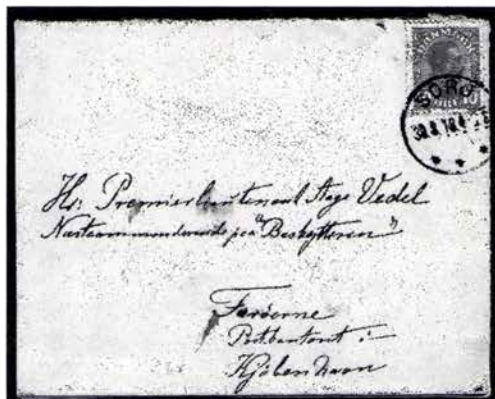 DANMARK
SORØ
Hr. Premierlieutenant Aage Vedel
Næstkommanderende paa "Beskytteren"
Færöerne
Postkontoret i
Kjöbenhavn